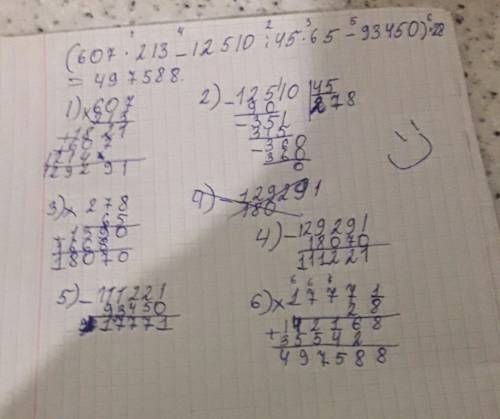 (607 · 213 - 12510 : 45 · 65 - 93450) · 28
= 497588.
1) × 607
213
+ 1821
607
1214
129291
2) - 12510 | 45
90 278
- 351
315
- 360
360
0
3) × 278
65
+ 1390
1668
18070
4) - 129291
180
4) - 129291
18070
111221
5) - 111221
93450
17771
6) × 17771
28
+ 142168
35542
497588